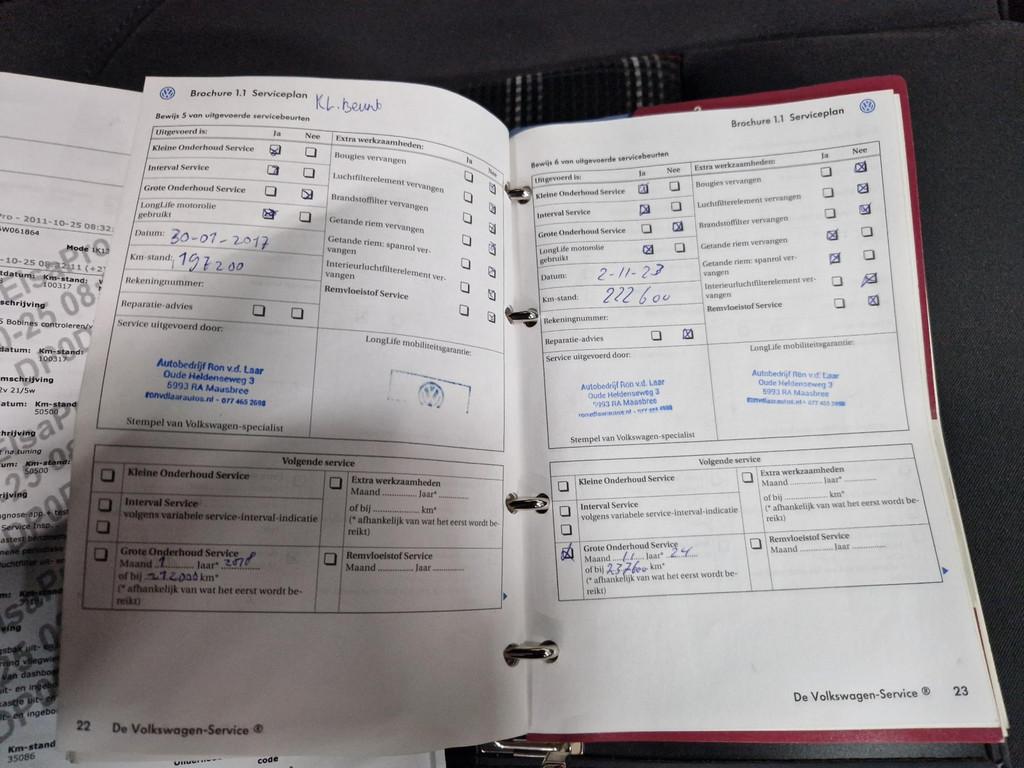 Brochure 1.1 Serviceplan
KL. Beurt
Bewijs 5 van uitgevoerde servicebeurten
Uitgevoerd is: Ja Nee
Kleine Onderhoud Service
Interval Service
Grote Onderhoud Service
LongLife motorolie
gebruikt
Datum: 30-01-2017
Km-stand: 197200
Rekeningnummer:
Reparatie-advies
Extra werkzaamheden: Ja Nee
Bougies vervangen
Luchtfilterelement vervangen
Brandstoffilter vervangen
Getande riem vervangen
Getande riem: spanrol ver-
vangen
Interieurluchtfilterelement ver-
vangen
Remvloeistof Service
Service uitgevoerd door:
Autobedrijf Ron v.d. Laar
Oude Heldenseweg 3
5993 RA Maasbree
ronvdlaarautos.nl - 077 465 2698
Stempel van Volkswagen-specialist
LongLife mobiliteitsgarantie:
Volgende service
Kleine Onderhoud Service
Interval Service
volgens variabele service-interval-indicatie
Grote Onderhoud Service
Maand 1 Jaar* 2018
of bij 212000 km*
(* afhankelijk van wat het eerst wordt be-
reikt)
Extra werkzaamheden
Maand Jaar*
of bij km*
(* afhankelijk van wat het eerst wordt be-
reikt)
Remvloeistof Service
Maand Jaar
22 De Volkswagen-Service ®
Brochure 1.1 Serviceplan
Bewijs 6 van uitgevoerde servicebeurten
Uitgevoerd is: Ja Nee
Kleine Onderhoud Service
Interval Service
Grote Onderhoud Service
LongLife motorolie
gebruikt
Datum: 2-11-23
Km-stand: 222600
Rekeningnummer:
Reparatie-advies
Extra werkzaamheden: Ja Nee
Bougies vervangen
Luchtfilterelement vervangen
Brandstoffilter vervangen
Getande riem vervangen
Getande riem: spanrol ver-
vangen
Interieurluchtfilterelement ver-
vangen
Remvloeistof Service
Service uitgevoerd door:
Autobedrijf Ron v.d. Laar
Oude Heldenseweg 3
5993 RA Maasbree
LongLife mobiliteitsgarantie:
Autobedrijf Ron v.d. Laar
Oude Heldenseweg 3
5993 RA Maasbree
ronvdlaarautos.nl - 077 465 2698
Stempel van Volkswagen-specialist
Volgende service
Kleine Onderhoud Service
Interval Service
volgens variabele service-interval-indicatie
Grote Onderhoud Service
Maand 11 Jaar* 24
of bij 237600 km*
(* afhankelijk van wat het eerst wordt be-
reikt)
Extra werkzaamheden
Maand Jaar*
of bij km*
(* afhankelijk van wat het eerst wordt be-
reikt)
Remvloeistof Service
Maand Jaar
De Volkswagen-Service ® 23
2011-10-25 08:32:
W061864
Km-stand:
100317
Bobines controleren/v
Km-stand:
100317
50500
Km-stand
35086
code